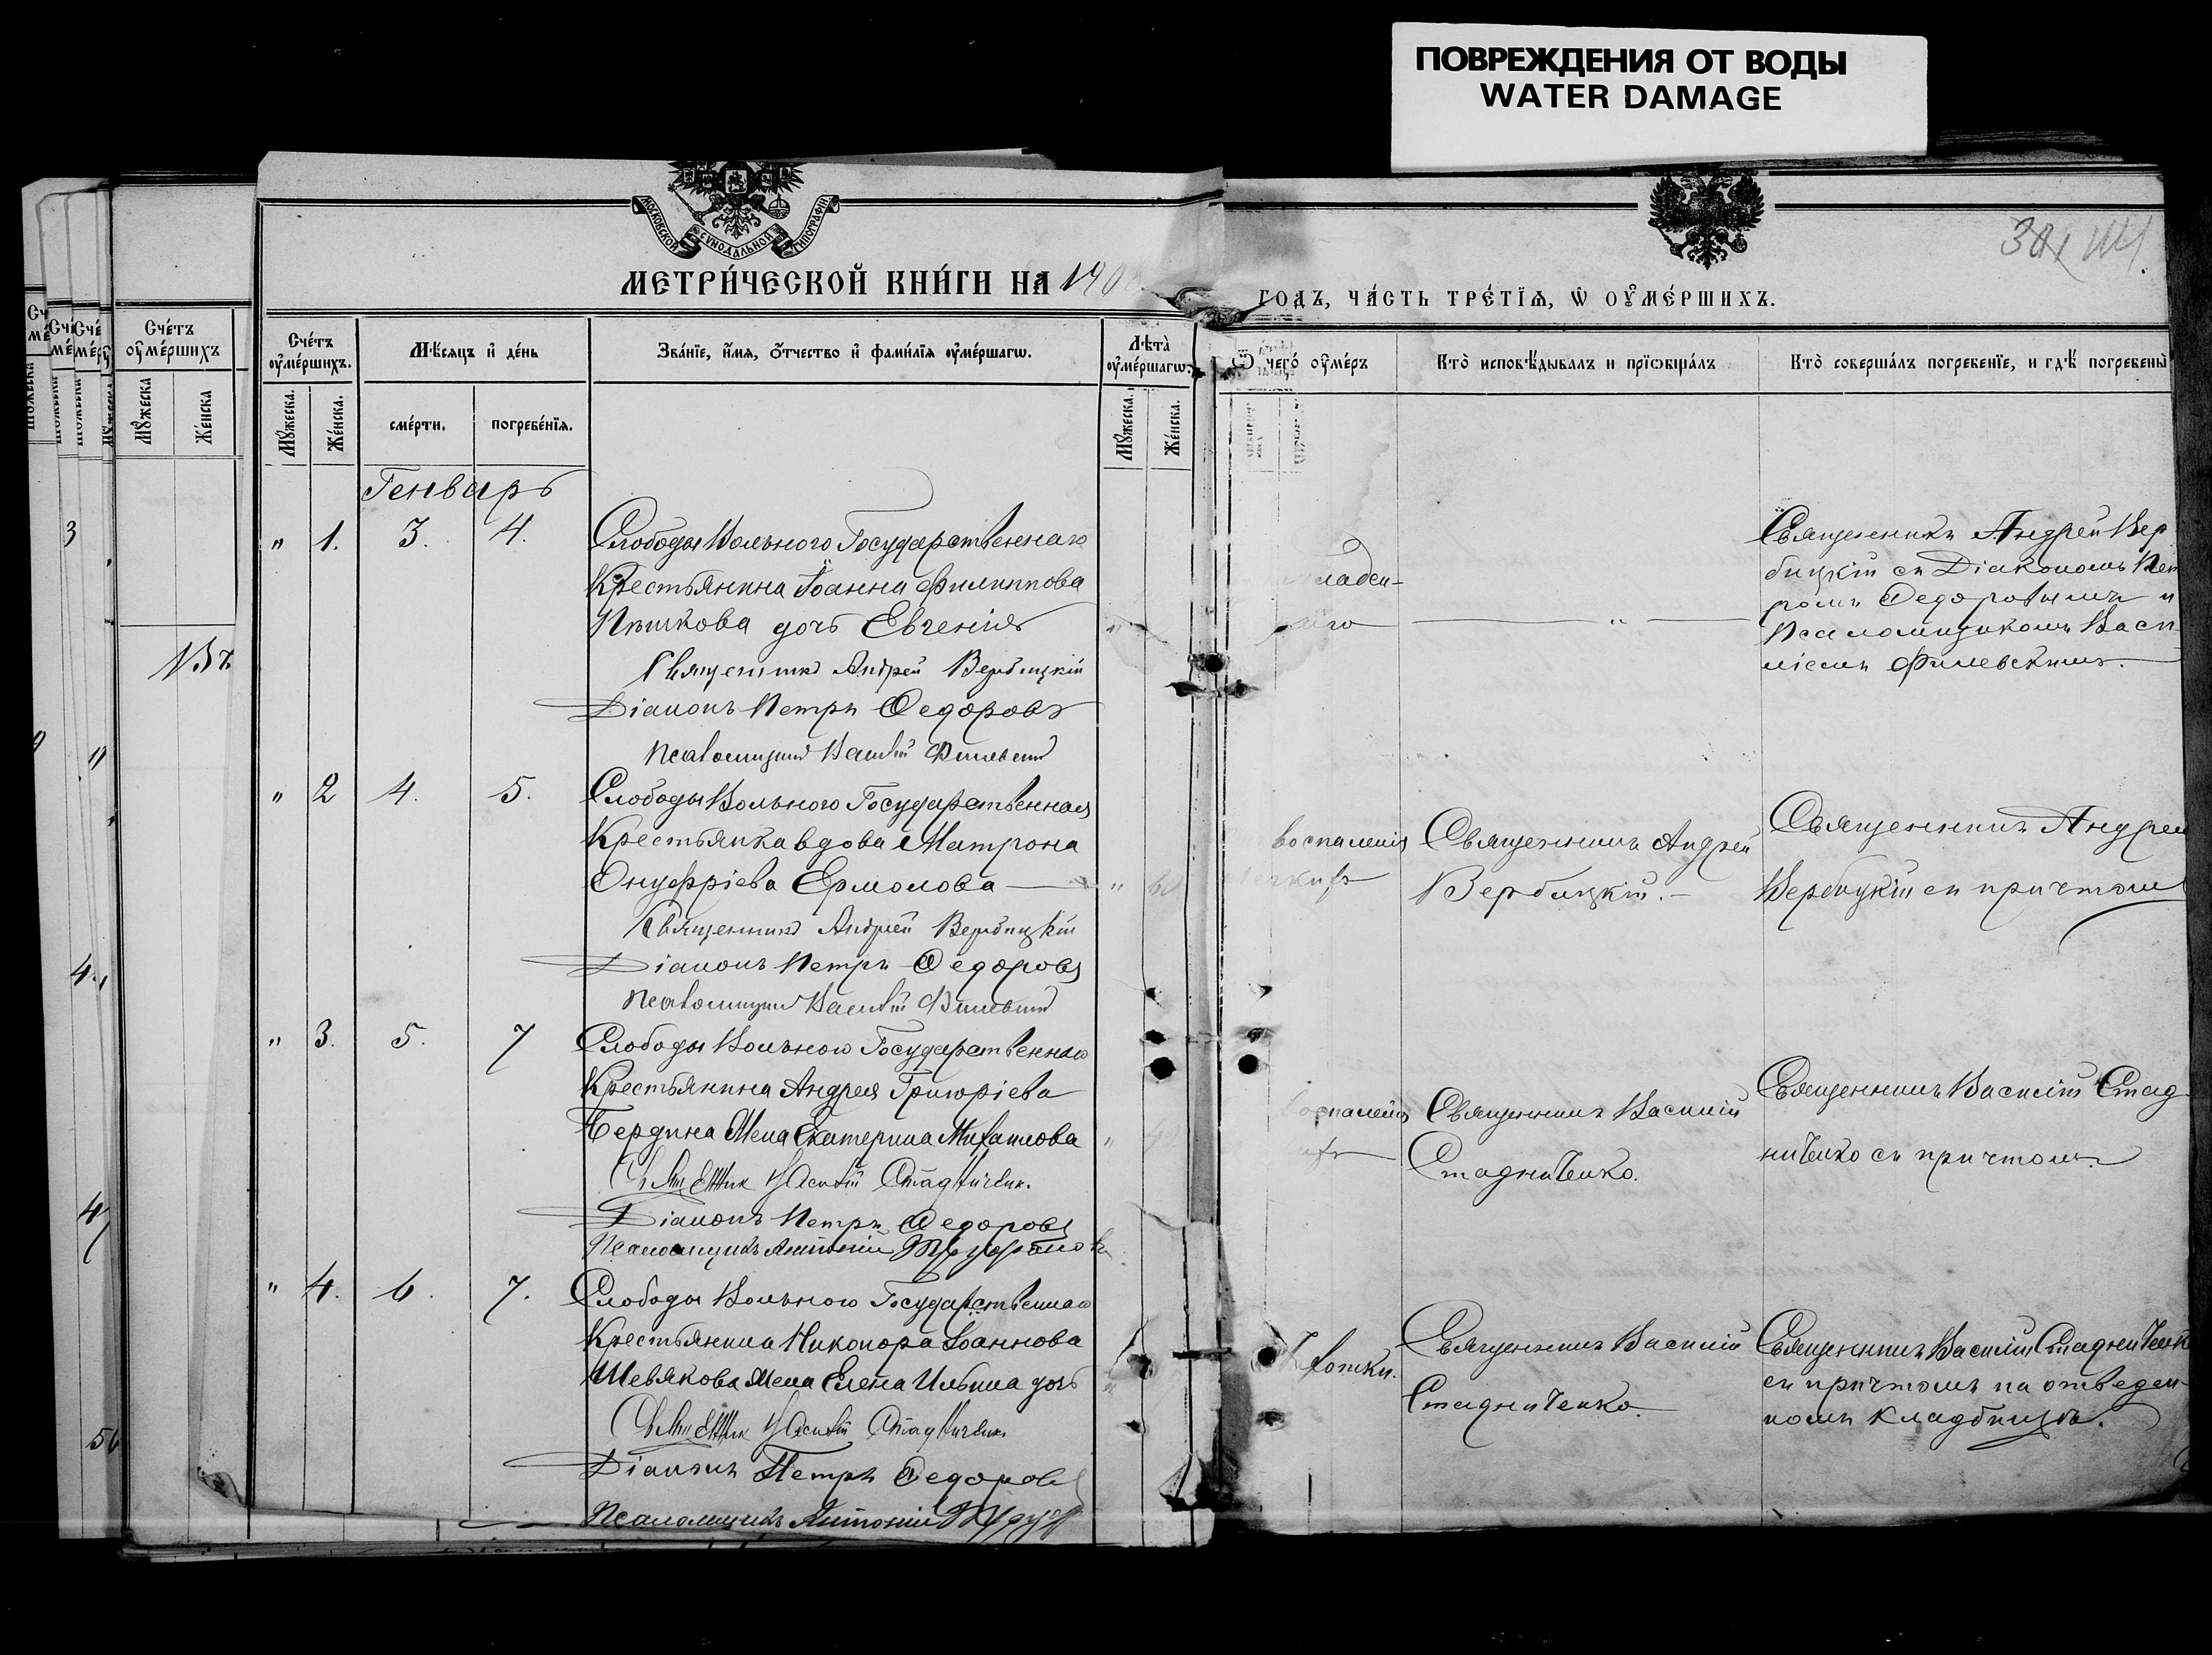 ПОВРЕЖДЕНИЯ ОТ ВОДЫ
WATER DAMAGE
МОСКОВСКОЙ СУНОДАЛЬНОЙ ТИПОГРАФІИ
МЕТРИ́ЧЕСКОЙ КНИ́ГИ НА 190
ГОДЪ, ЧА́СТЬ ТРЕ́ТЇѦ, Ѡ҆ ОУ҆МЕ́РШИХЪ.
Сче́тъ оу҆ме́ршихъ
Мꙋ́жеска
Же́нска
Сче́тъ оу҆ме́ршихъ.
Мꙋ́жеска.
Же́нска.
Мѣ́сяцъ и҆ де́нь
сме́рти.
погребе́нїѧ.
Зва́нїе, и҆́мѧ, ѻ҆́тчество и҆ фами́лїѧ оу҆ме́ршагѡ.
Лѣ́та̀ оу҆ме́ршагѡ.
Мꙋ́жеска.
Же́нска.
Ѿ чегѡ́ оу҆́меръ
Кто̀ исповѣ́дывалъ и прїѡбща́лъ
Кто̀ соверша́лъ погребе́нїе, и гдѣ̀ погребены̀
Генварь
" 1. 3. 4. Слободы Вольного Государственнаго
Крестьянина Іоанна Филиппова
Пѣшкова дочь Евгенія
Священникъ Андрей Вербицкій
Діаконъ Петръ Ѳедоровъ
Псаломщикъ Василій Филевскій
младен-
Священникъ Андрей Вер
бицкій съ Діакономъ Пет
ромъ Ѳедоровымъ и
Псаломщикомъ Васи
ліемъ Филевскимъ.
" 2 4. 5. Слободы Вольного Государственная
Крестьянка вдова Матрона
Онуфріева Ермолова " 60
Священникъ Андрей Вербицкій
Діаконъ Петръ Ѳедоровъ
Псаломщикъ Василій Филевскій
воспаленія
Священникъ Андрей
Вербицкій.
Священникъ Андрей
Вербицкій съ причтом
" 3. 5. 7 Слободы Вольного Государственнаго
Крестьянина Андрея Григоріева
Бердина Жена Екатерина Михаилова "
Священник Василій Стадниченк.
Діаконъ Петръ Ѳедоровъ
Псаломщикъ Антоній
Священникъ Василій
Стадниченко.
Священникъ Василій Стад
ниченко съ причтомъ.
" 4. 6. 7. Слободы Вольного Государственнаго
Крестьянина Никонора Іоаннова
Шевякова Жена Елена Ильина дочь
Священник Василій Стадниченк.
Діаконъ Петръ Ѳедоровъ
Псаломщикъ Антоній
Чахотки.
Священникъ Василій
Стадниченко.
Священникъ Василій Стадниченк
съ причтомъ на отведен-
номъ кладбищѣ.